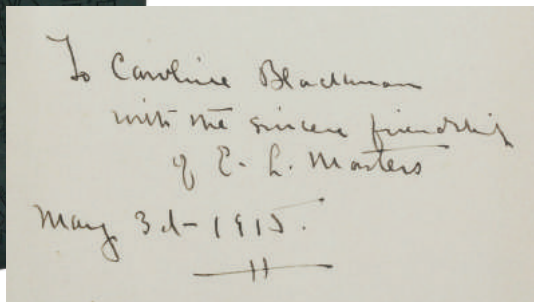 To Caroline Blackman
with the sincere friendship
of E. L. Masters
May 3d - 1915.